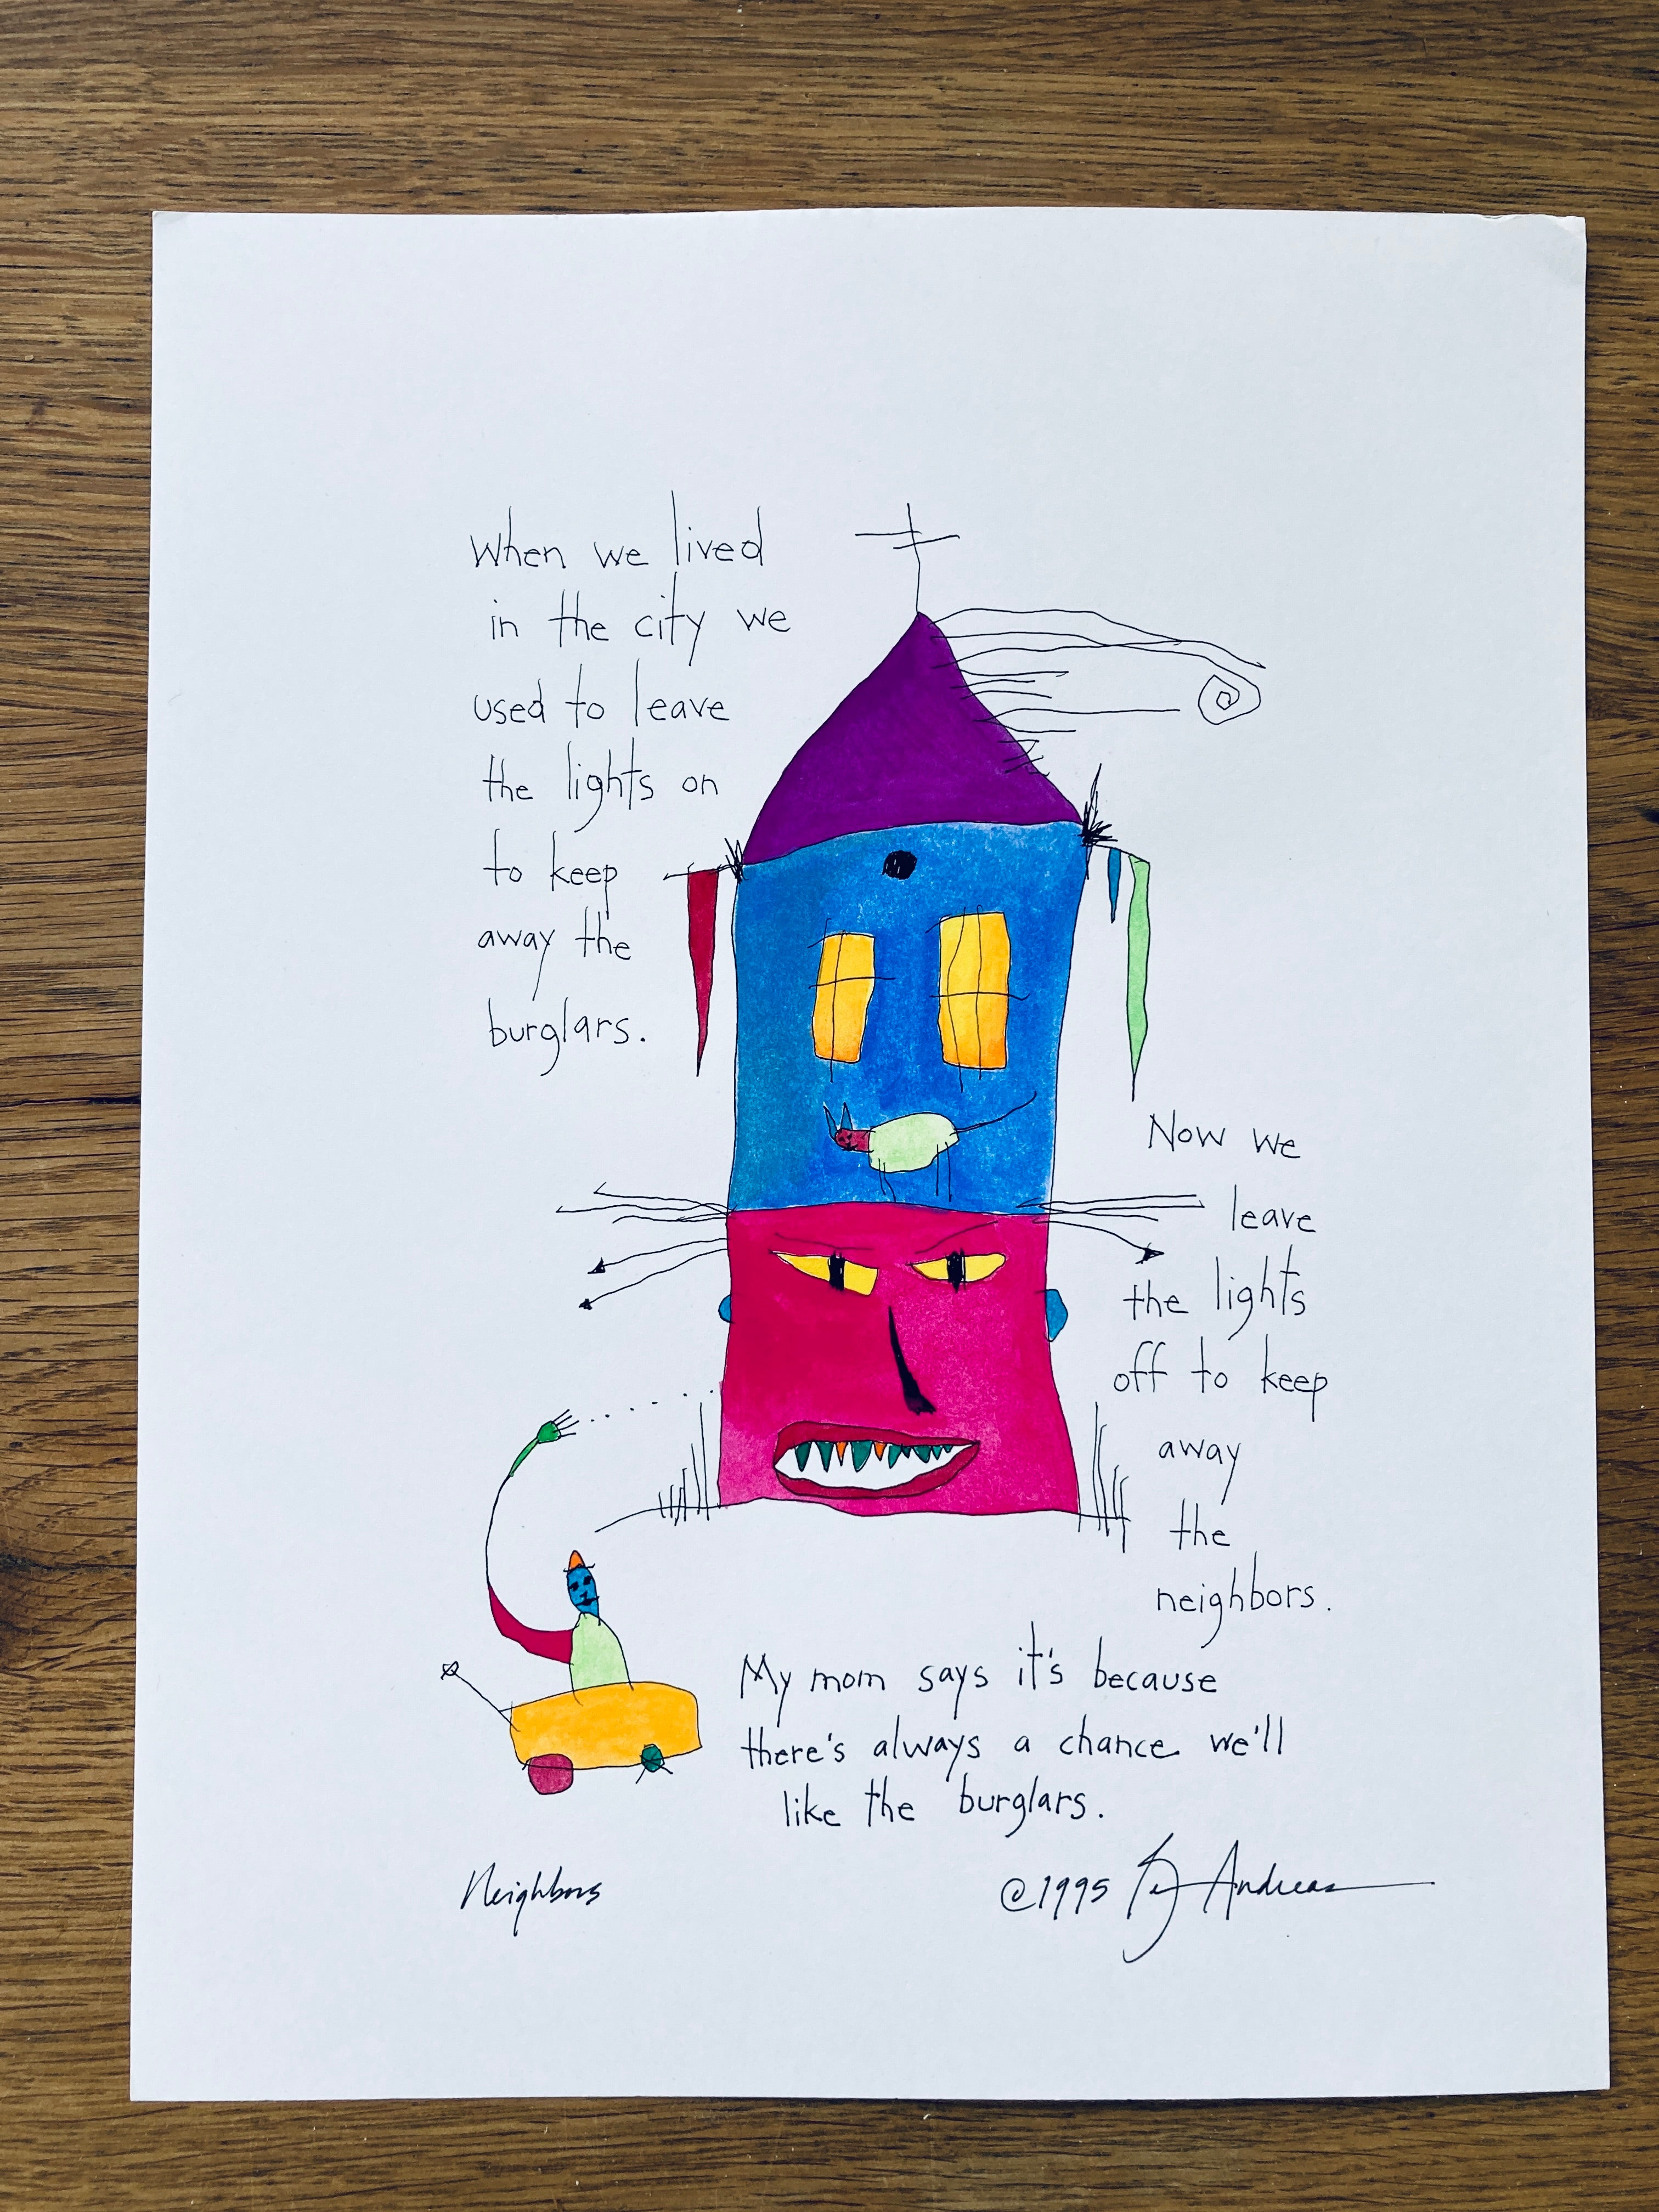 When we lived
in the city we
used to leave
the lights on
to keep
away the
burglars.
Now we
leave
the lights
off to keep
away
the
neighbors.
My mom says it's because
there's always a chance we'll
like the burglars.
Neighbors
©1995 Andreas